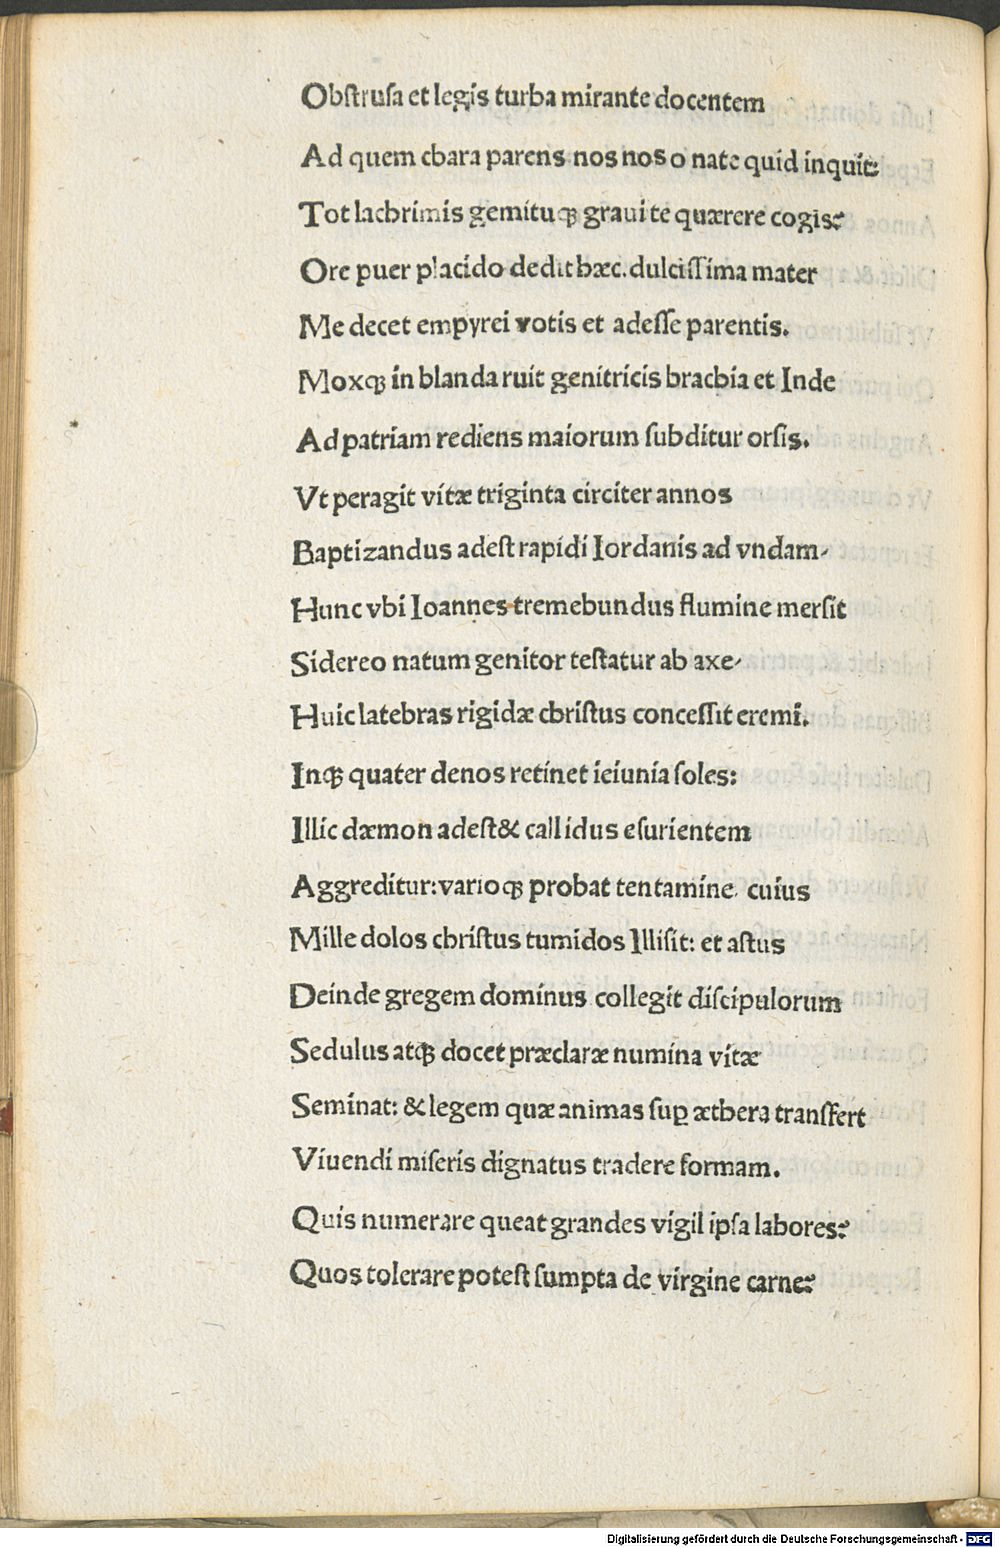 Obstrusa et legis turba mirante docentem
Ad quem chara parens nos nos o nate quid inquit:
Tot lachrimis gemituqꝫ graui te quærere cogis?
Ore puer placido dedit hæc. dulcissima mater
Me decet empyrei votis et adesse parentis.
Moxqꝫ in blanda ruit genitricis brachia et Inde
Ad patriam rediens maiorum subditur orsis.
Vt peragit vitæ triginta circiter annos
Baptizandus adest rapidi Iordanis ad vndam/
Hunc vbi Ioannes tremebundus flumine mersit
Sidereo natum genitor testatur ab axe/
Huic latebras rigidæ christus concessit eremi.
Inqꝫ quater denos retinet ieiunia soles:
Illic dæmon adest & callidus esurientem
Aggreditur: varioqꝫ probat tentamine. cuius
Mille dolos christus tumidos Illisit: et astus
Deinde gregem dominus collegit discipulorum
Sedulus atqꝫ docet præclaræ numina vitæ
Seminat: & legem quæ animas suꝑ æthera transfert
Viuendi miseris dignatus tradere formam.
Quis numerare queat grandes vigil ipsa labores?
Quos tolerare potest sumpta de virgine carne?
Digitalisierung gefördert durch die Deutsche Forschungsgemeinschaft - DFG